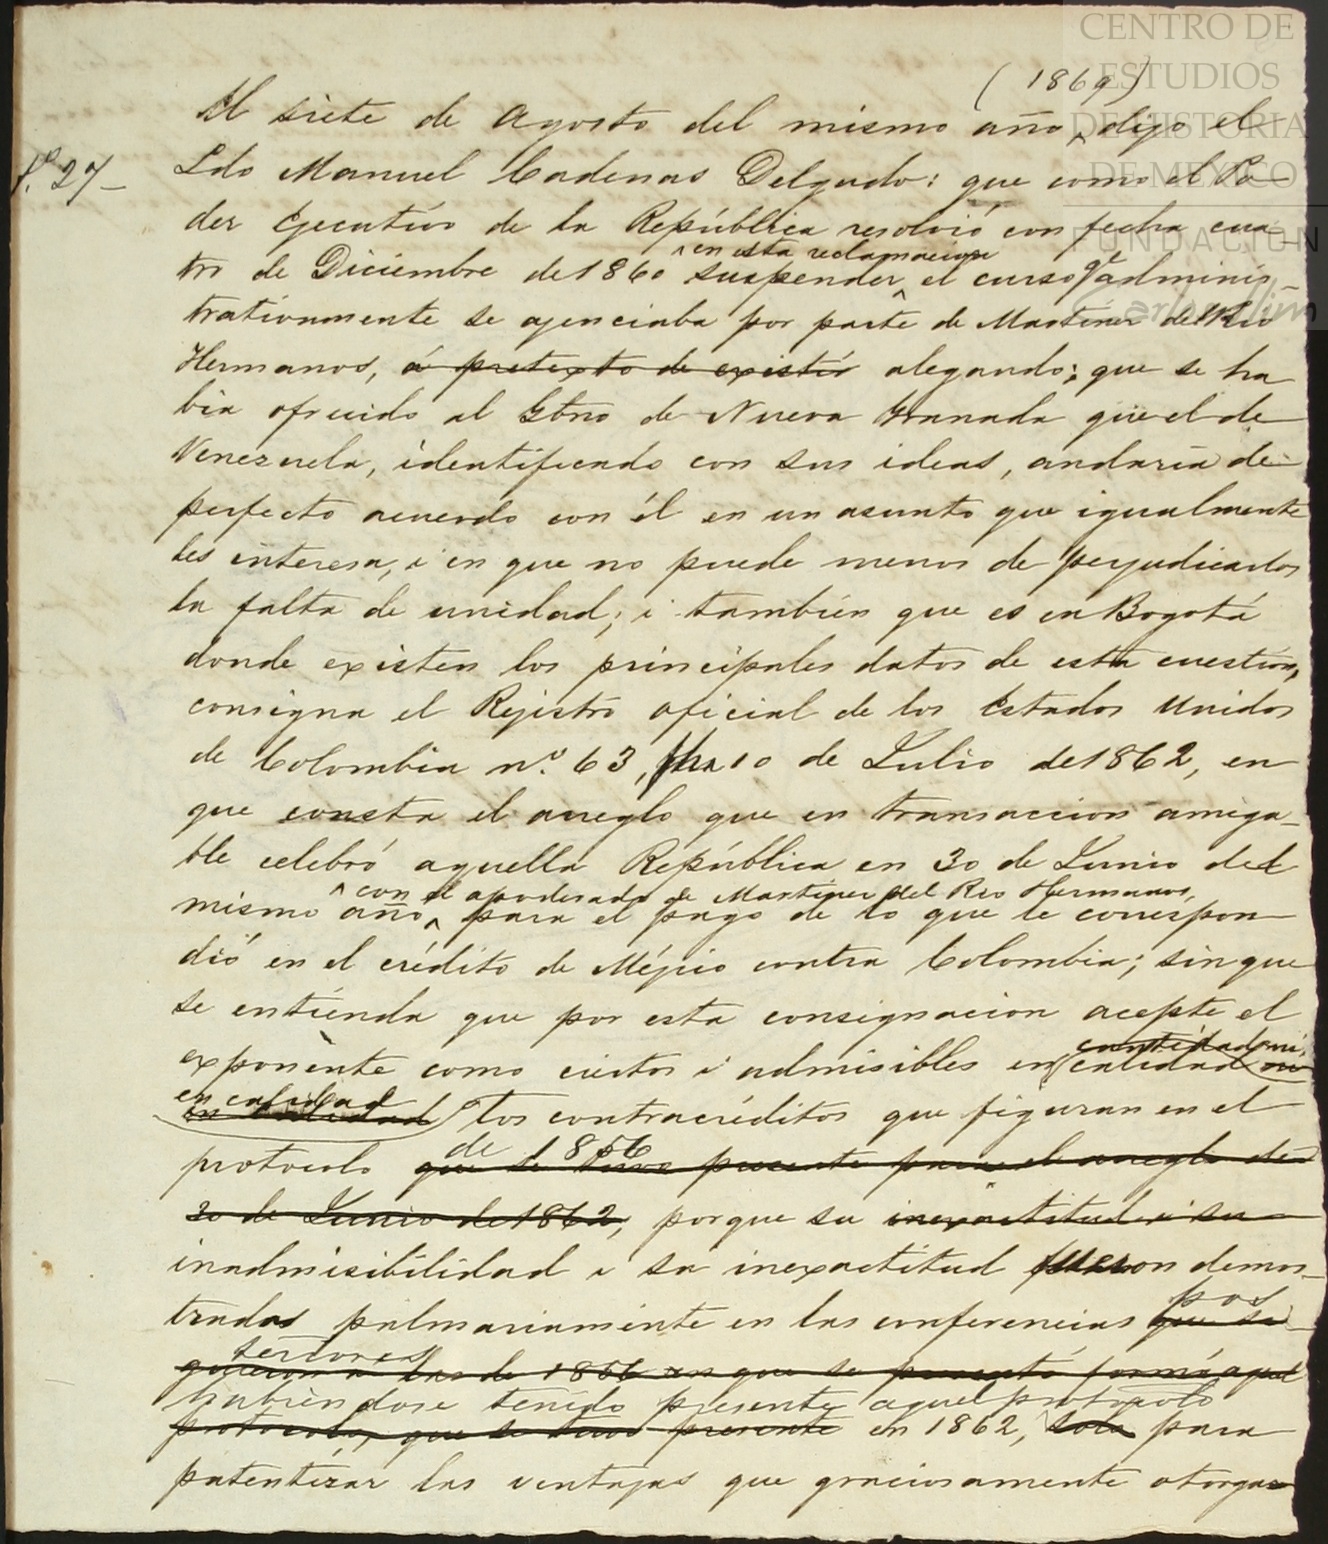 (1869)
El siete de Agosto del mismo año, dijo el
f.º 27-
Ldo Manuel Cadenas Delgado: que como el Po-
der Ejecutivo de la República resolvió con fecha cua-
en esta reclamacion
tro de Diciembre de 1860 suspender el curso qe adminis-
trativamente se ajenciaba por parte de Martinez del Rio
Hermanos, á pretexto de existir alegando: que se ha
bia ofrecido al Gbno de Nueva Granada que el de
Venezuela, identificado con sus ideas, andaria de
perfecto acuerdo con él en un asunto que igualmente
les interesa, i en que no puede menos de perjudicarlos
la falta de unidad; i tambien que es en Bogotá
donde existen los principales datos de esta cuestion,
consigna el Rejistro oficial de los Estados Unidos
de Colombia n.º 63, fha 10 de Julio de 1862, en
que consta el arreglo que en transaccion amiga-
ble celebró aquella República en 30 de Junio del
con el apoderado de Martinez del Rio Hermanos,
mismo año, para el pago de lo que le correspon
dió en el crédito de Méjico contra Colombia; sin que
se entienda que por esta consignacion acepte el
cantidad ni
exponente como ciertos i admisibles en calidad ni
en calidad
en cantidad los contracréditos que figuran en el
de 1856
protocolo que se tuvo presente para el arreglo de
30 de Junio de 1862, porque su inexactitud i su
inadmisibilidad i su inexactitud fueron demos-
tradas palmariamente en las conferencias que si-
pos
teriores
guieron a las de 1856 en que se presentó formó aquel
habiendose tenido presente aquel protocolo
protocolo, que se tuvo presente en 1862, solo para
patentizar las ventajas que graciosamente otorga
CENTRO DE
ESTUDIOS
DE HISTORIA
DE MEXICO
FUNDACIÓN
Carlos Slim